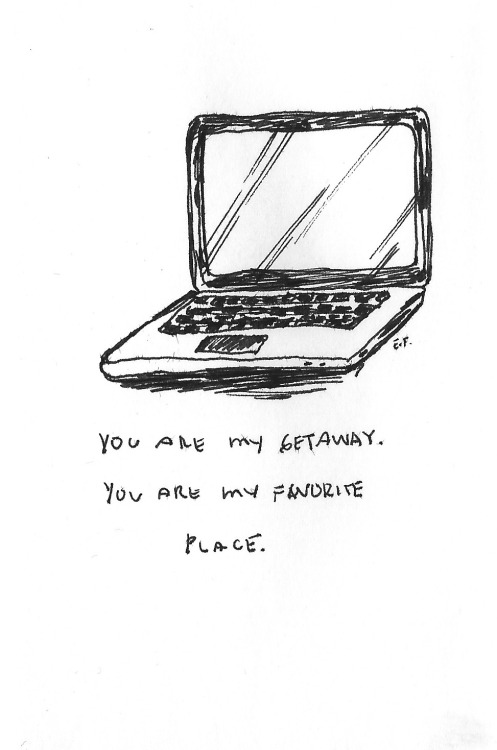 E.F.
YOU ARE MY GETAWAY.
YOU ARE MY FAVORITE
PLACE.